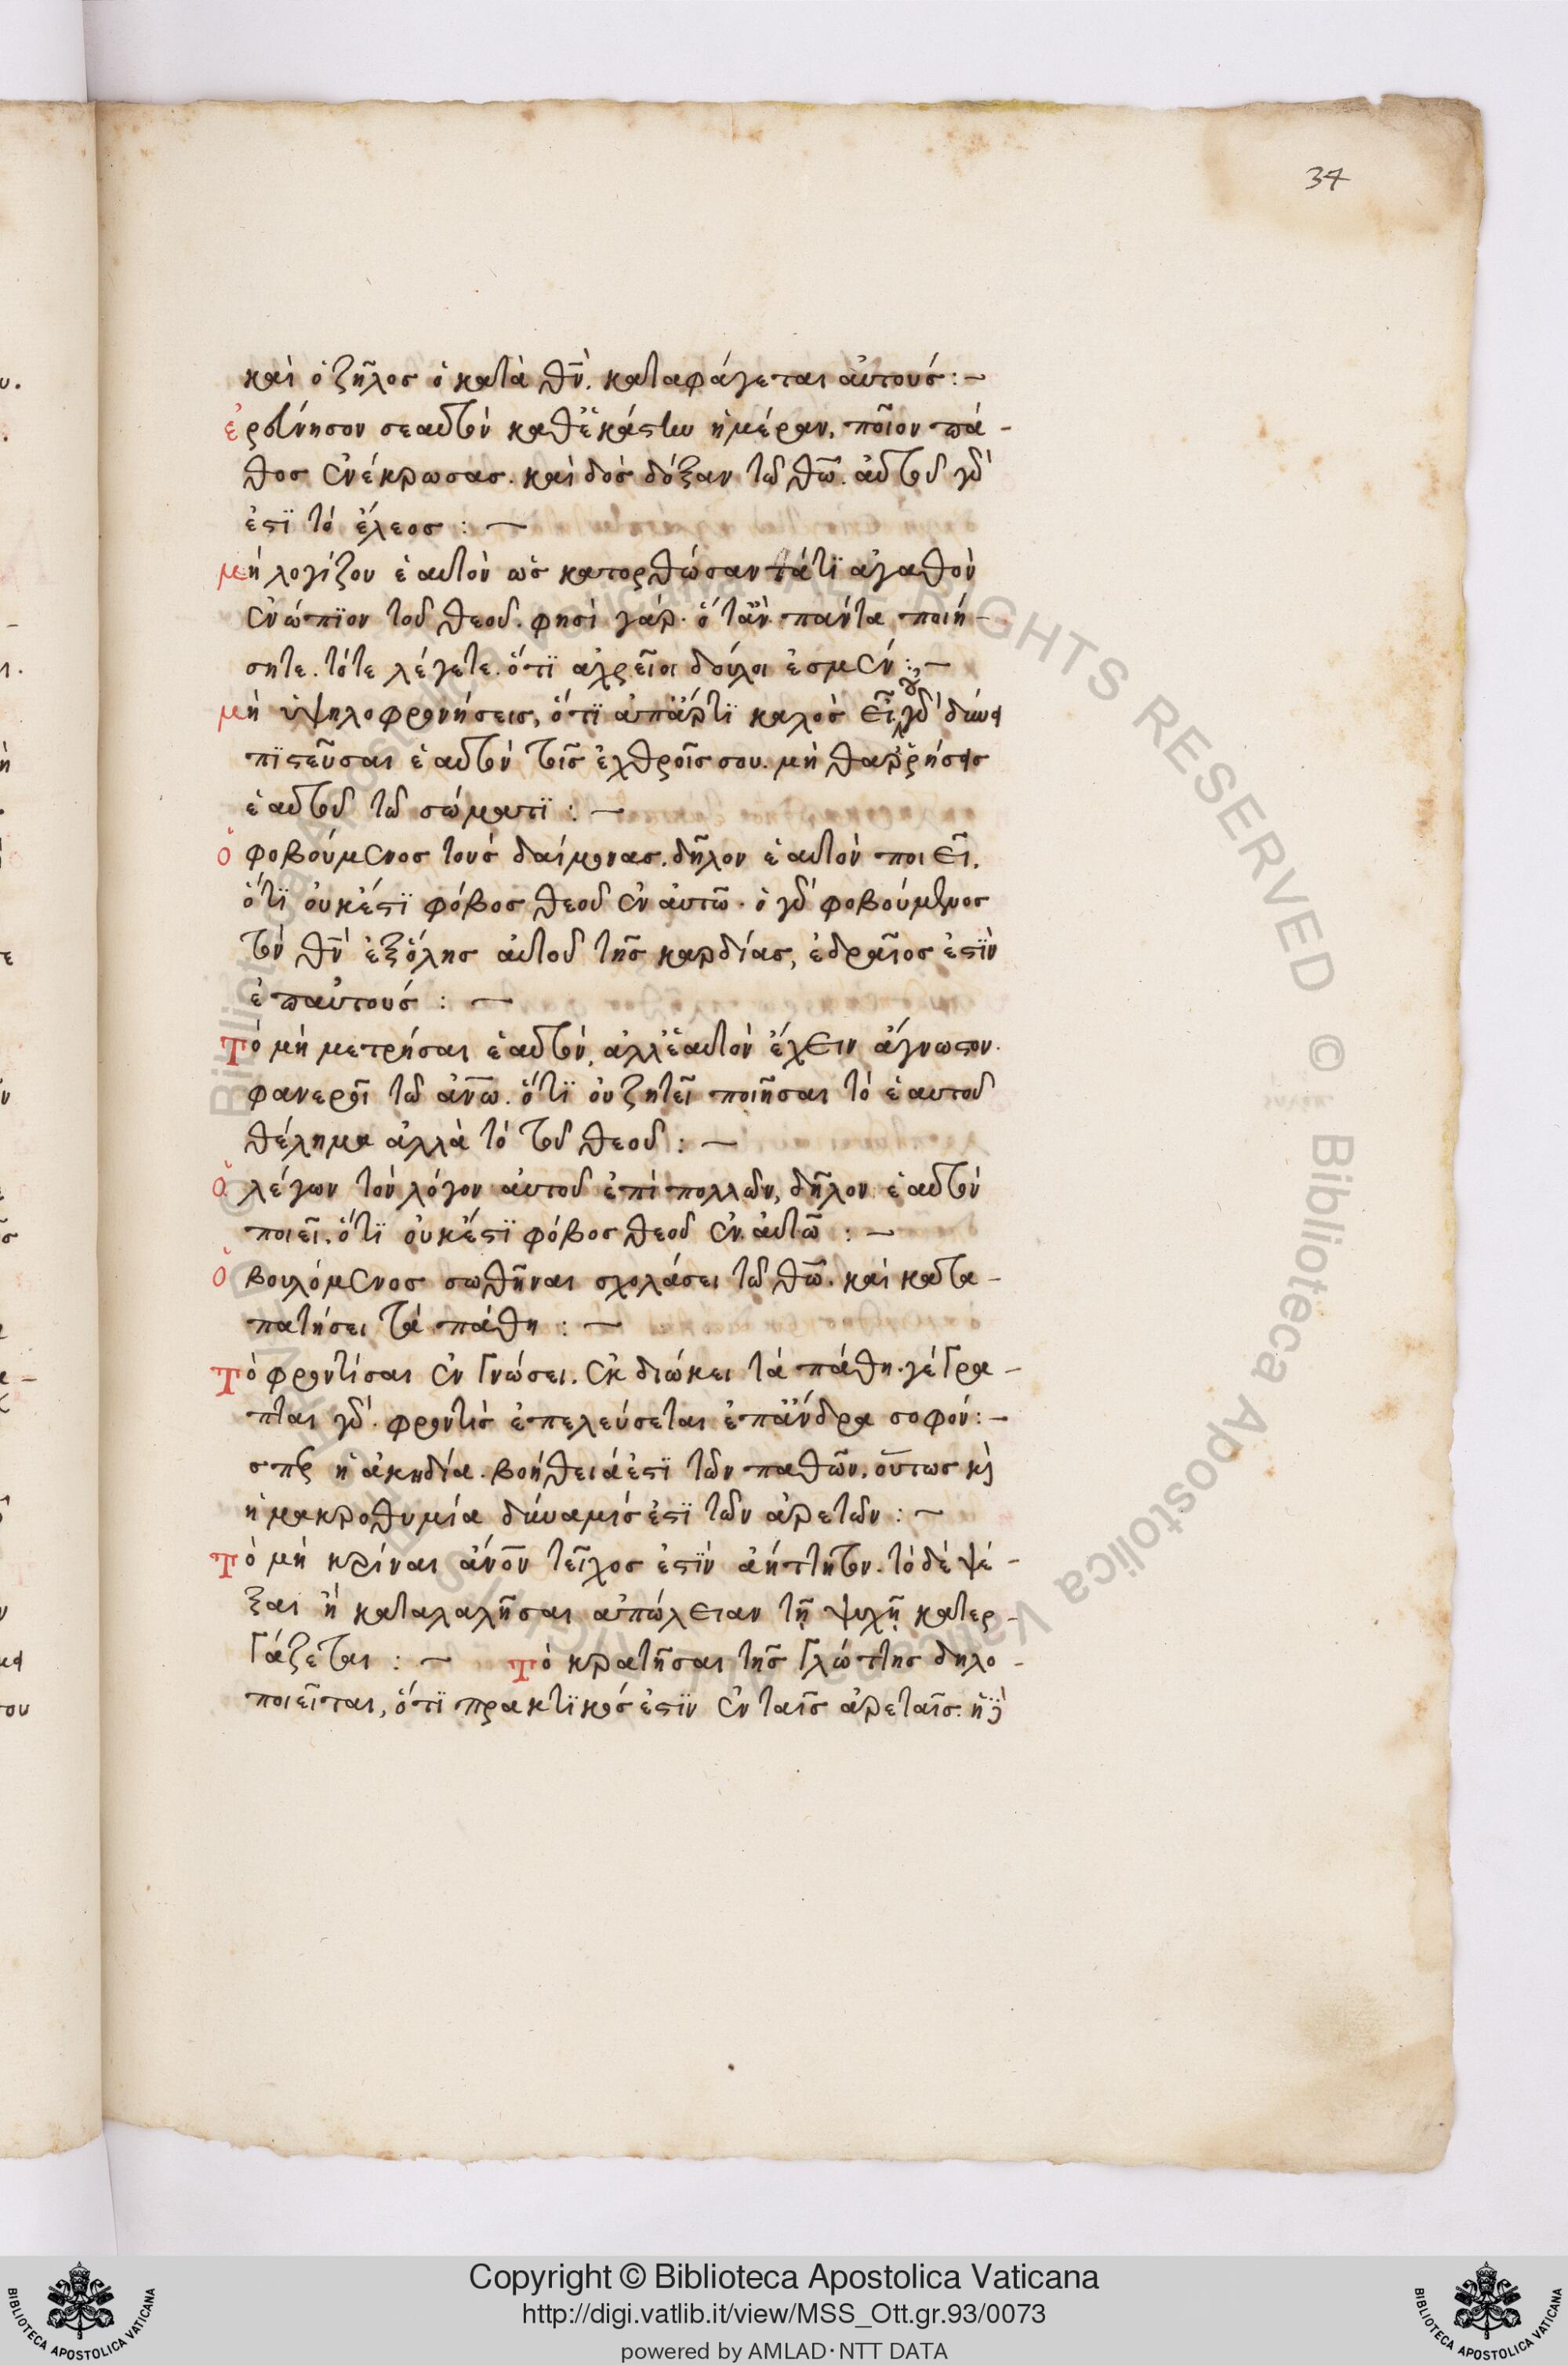 34
καὶ ὁ ζῆλος ὁ κατὰ θν̅. καταφάγεται αὐτούς: —
ἐρεύνησον σεαυτὸν καθἑκάστην ἡμέραν, ποῖον πά-
θος ἐνέκρωσας. καὶ δὸς δόξαν τῶ θω̅. αὐτοῦ γὰρ
ἐστϊ τὸ ἔλεος : —
μὴ λογίζου ἑαυτὸν ὡς κατορθώσαντά τϊ ἀγαθὸν
ἐνώπϊον τοῦ θεοῦ. φησὶ γάρ. ὅταν πάντα ποιή-
σητε. τότε λέγετε. ὅτϊ ἀχρεῖοι δοῦλοι ἐσμέν : —
μὴ ὑψηλοφρονήσεις, ὅτϊ ἀπάρτϊ καλὸς εἶ, οὐ γὰρ δύνα
πϊστεῦσαι ἑαυτὸν τοῖς ἐχθροῖς σου. μὴ θαρρήσης
ἑαυτοῦ τῶ σώματϊ : —
ὁ φοβούμενος τοὺς δαίμονας. δῆλον ἑαυτὸν ποιεῖ.
ὅτϊ οὐκἔστϊ φόβος θεοῦ ἐν αὐτῶ. ὁ γὰρ φοβούμενος
τὸν θν̅ ἐξόλης αὐτοῦ τῆς καρδίας, ἑδραῖος ἐστϊν
ἐπαὐτούς : —
Τὸ μὴ μετρῆσαι ἑαυτὸν, ἀλλἑαυτὸν ἔχειν ἄγνωστον.
φανεροῖ τῶ ἀνω̅. ὅτϊ οὐ ζητεῖ ποιῆσαι τὸ ἑαυτοῦ
θέλημα ἀλλὰ τὸ τοῦ θεοῦ : —
ὁ λέγων τὸν λόγον αὐτοῦ ἐπὶ πολλῶν, δῆλον ἑαυτὸν
ποιεῖ. ὅτϊ οὐκἔστϊ φόβος θεοῦ ἐν αὐτῶ : —
ὁ βουλόμενος σωθῆναι σχολάσει τῶ θω̅. καὶ κατα-
πατήσει τὰ πάθη : —
Τὸ φροντίσαι ἐν γνώσει. ἐκδιώκει τὰ πάθη. γέγρα-
πται γὰρ. φροντὶς ἐπελεύσεται ἐπἄνδρα σοφόν: —
ἡ ἀκηδία. βοήθειά ἐστϊ τῶν παθῶν. οὕτως καὶ
ἡ μακροθυμία δύναμίς ἐστϊ τῶν ἀρετῶν : —
Τὸ μὴ κρῖναι ἄνον̅ τεῖχος ἐστϊν ἀήττητον. τὸ δὲ ψέ-
ξαι ἢ καταλαλῆσαι ἀπώλειαν τῇ ψυχῇ κατερ-
γάζεται : — Τὸ κρατῆσαι τῆς γλώττης δηλο-
ποιεῖται, ὅτϊ πρακτϊκός ἐστϊν ἐν ταῖς ἀρεταῖς.
Copyright © Biblioteca Apostolica Vaticana
http://digi.vatlib.it/view/MSS_Ott.gr.93/0073
powered by AMLAD·NTT DATA